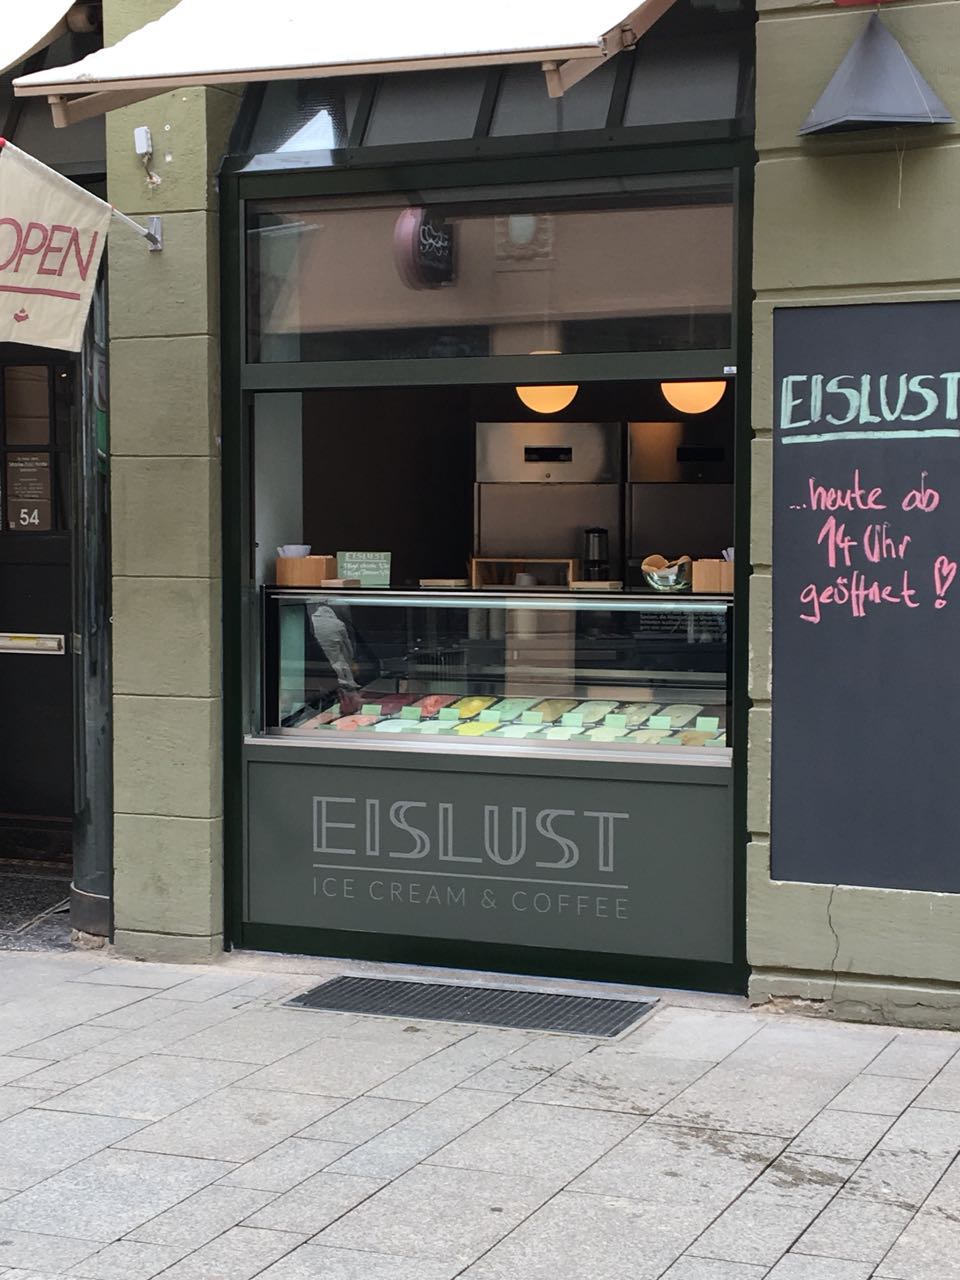 OPEN
54
EISLUST
EISLUST
...heute ab
14 Uhr
geöffnet!
EISLUST
ICE CREAM & COFFEE